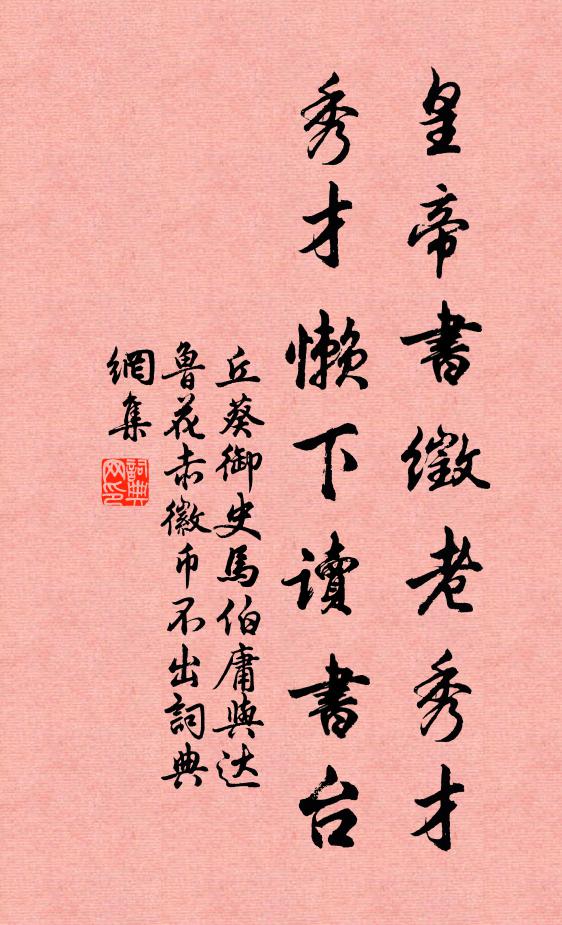 皇帝書徵老秀才
秀才懶下讀書台
丘葵御史馬伯庸與达
魯花赤徽币不出詞典
網集
詞典
网印